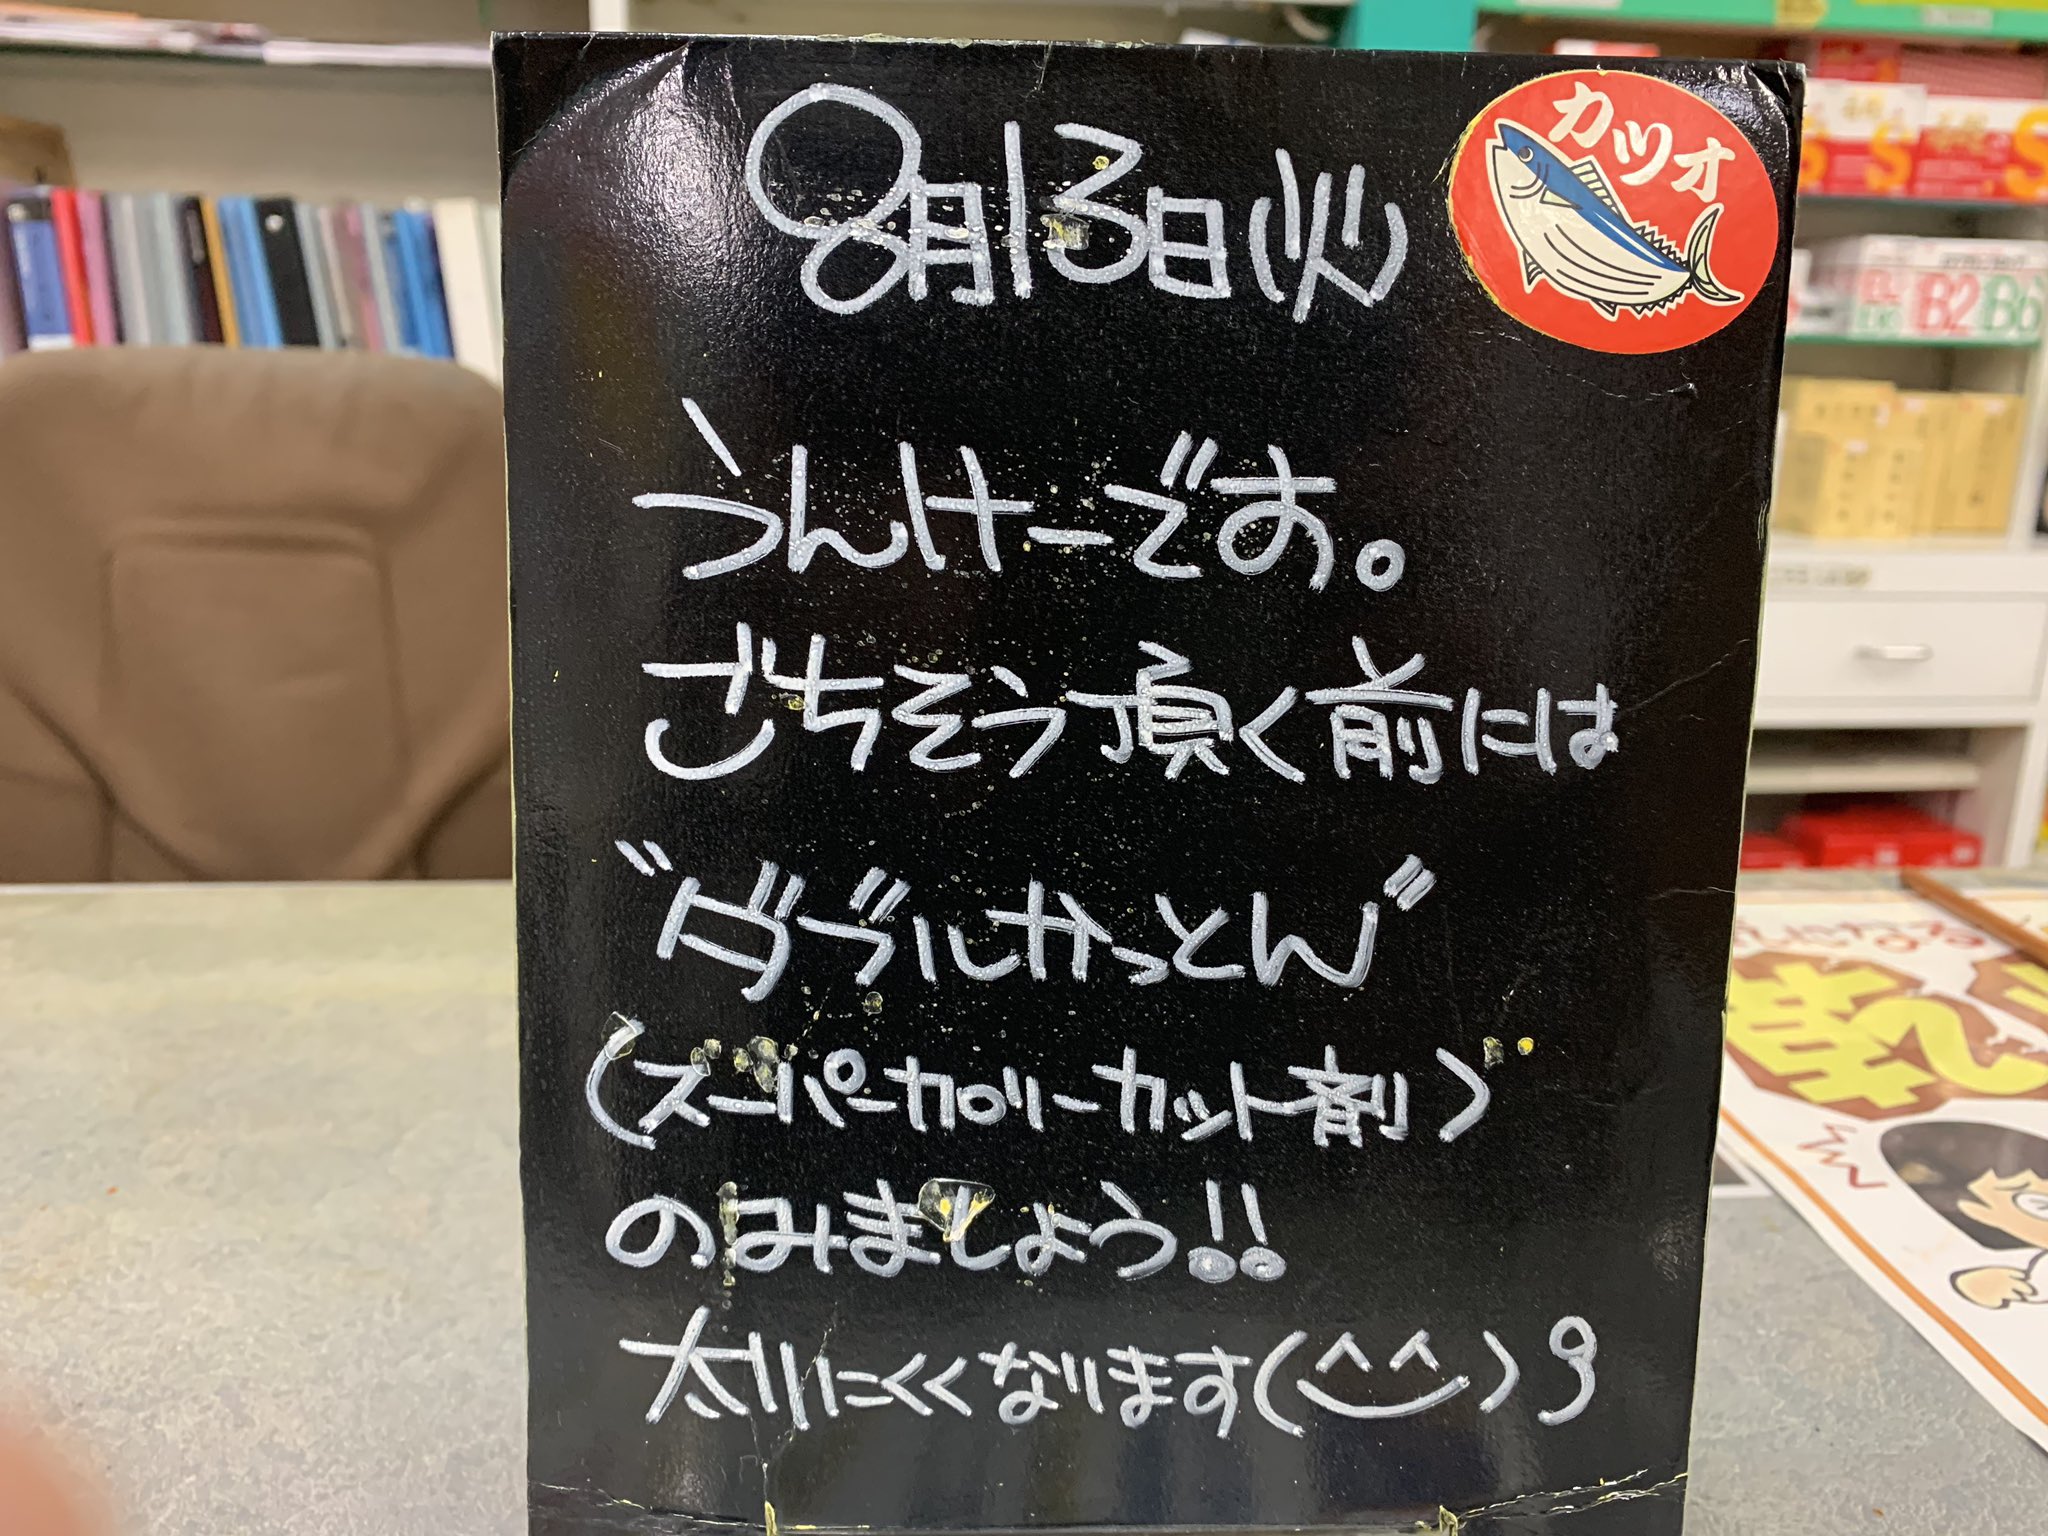 8月13日(火)
カツオ
うんけーです。
ごちそう頂く前には
"ダブルかっとん"
(スーパーカロリーカット剤)
のみましょう!!
太りにくくなります(^^)
S
S
B2B6